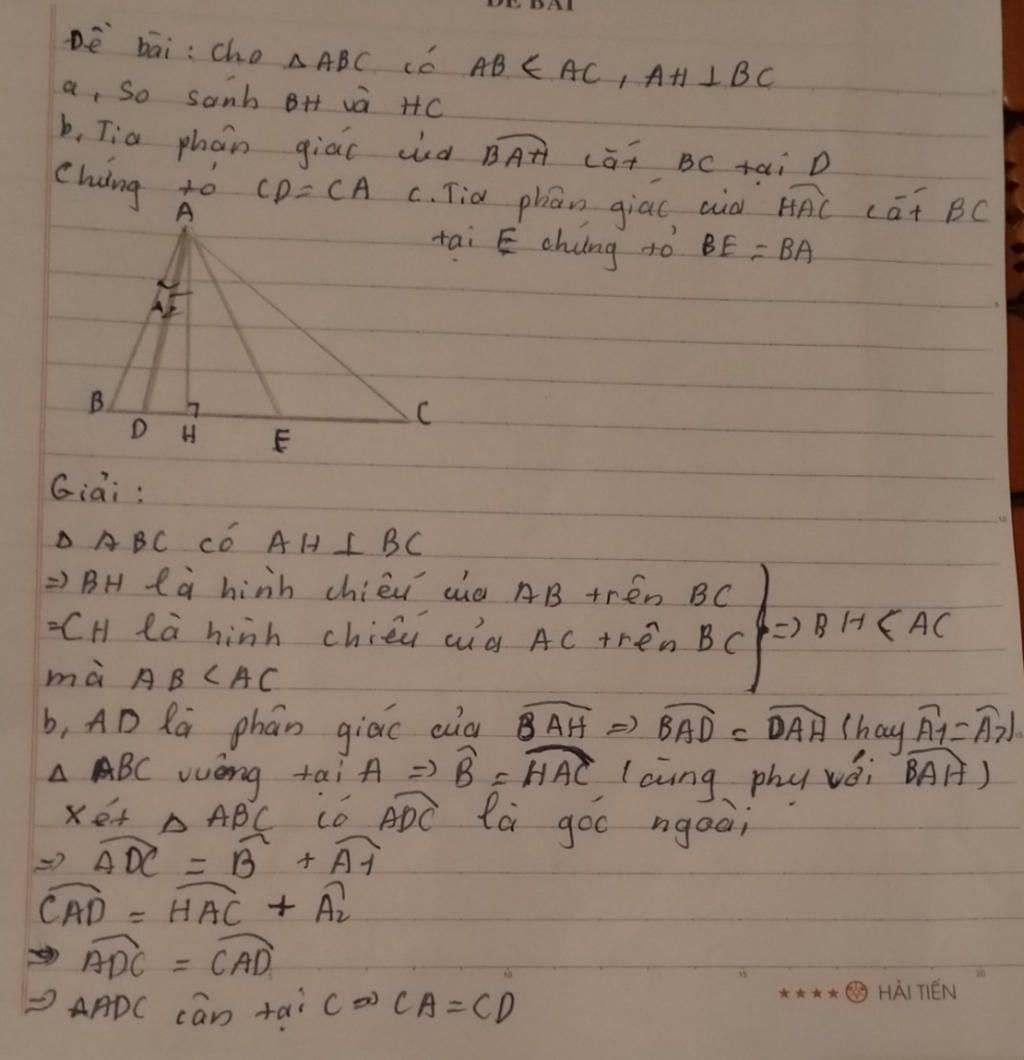 ĐỀ BÀI
Đề bài: Cho △ABC có AB < AC, AH ⊥ BC
a, So sánh BH và HC
b, Tia phân giác của BAH cắt BC tại D
Chứng tỏ CD = CA c. Tia phân giác của HAC cắt BC
tại E chứng tỏ BE = BA
A
B D H E C
Giải:
△ ABC có AH ⊥ BC
=> BH là hình chiếu của AB trên BC
=CH là hình chiếu của AC trên BC => BH < AC
mà AB < AC
b, AD là phân giác của BAH => BAD = DAH (hay A1 = A2)
△ ABC vuông tại A => B = HAC (cùng phụ với BAH)
Xét △ ABC có ADC là góc ngoài
=> ADC = B + A1
CAD = HAC + A2
=> ADC = CAD
=> △ADC cân tại C => CA = CD
HẢI TIẾN